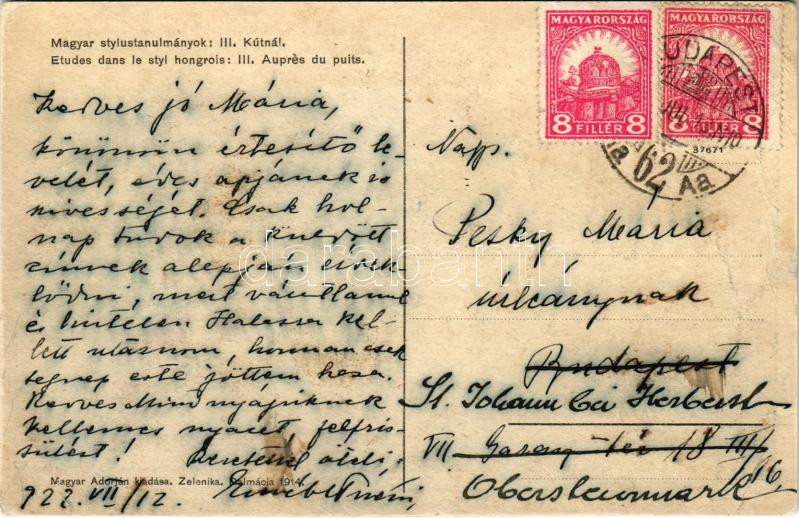 Magyar stylustanulmányok: III. Kútnál.
Etudes dans le styl hongrois: III. Auprès du puits.
Kedves jó Mária,
köszönöm értesítő le-
velét, édes apjának is
szivességét. Csak hol-
nap tudok a küldött
címek alapján érdek-
lődni, mert váratlanul
és hirtelen Halasra kel-
lett utaznom, honnan csak
tegnap este jöttem haza.
Kedves Mindnyájuknak
kellemes nyarat, felfris-
sülést!
Magyar Adorján kiadása. Zelenika. Dalmácia 1914.
VII/12.
MAGYARORSZÁG
8 FILLÉR 8
MAGYARORSZÁG
8 FILLÉR 8
37671
BUDAPEST
62
Nagys.
Pesky Mária
úrleánynak
Budapest
St. Johann bei Herberst
VII Garay-tér 18
Obersteiermark
darabanth